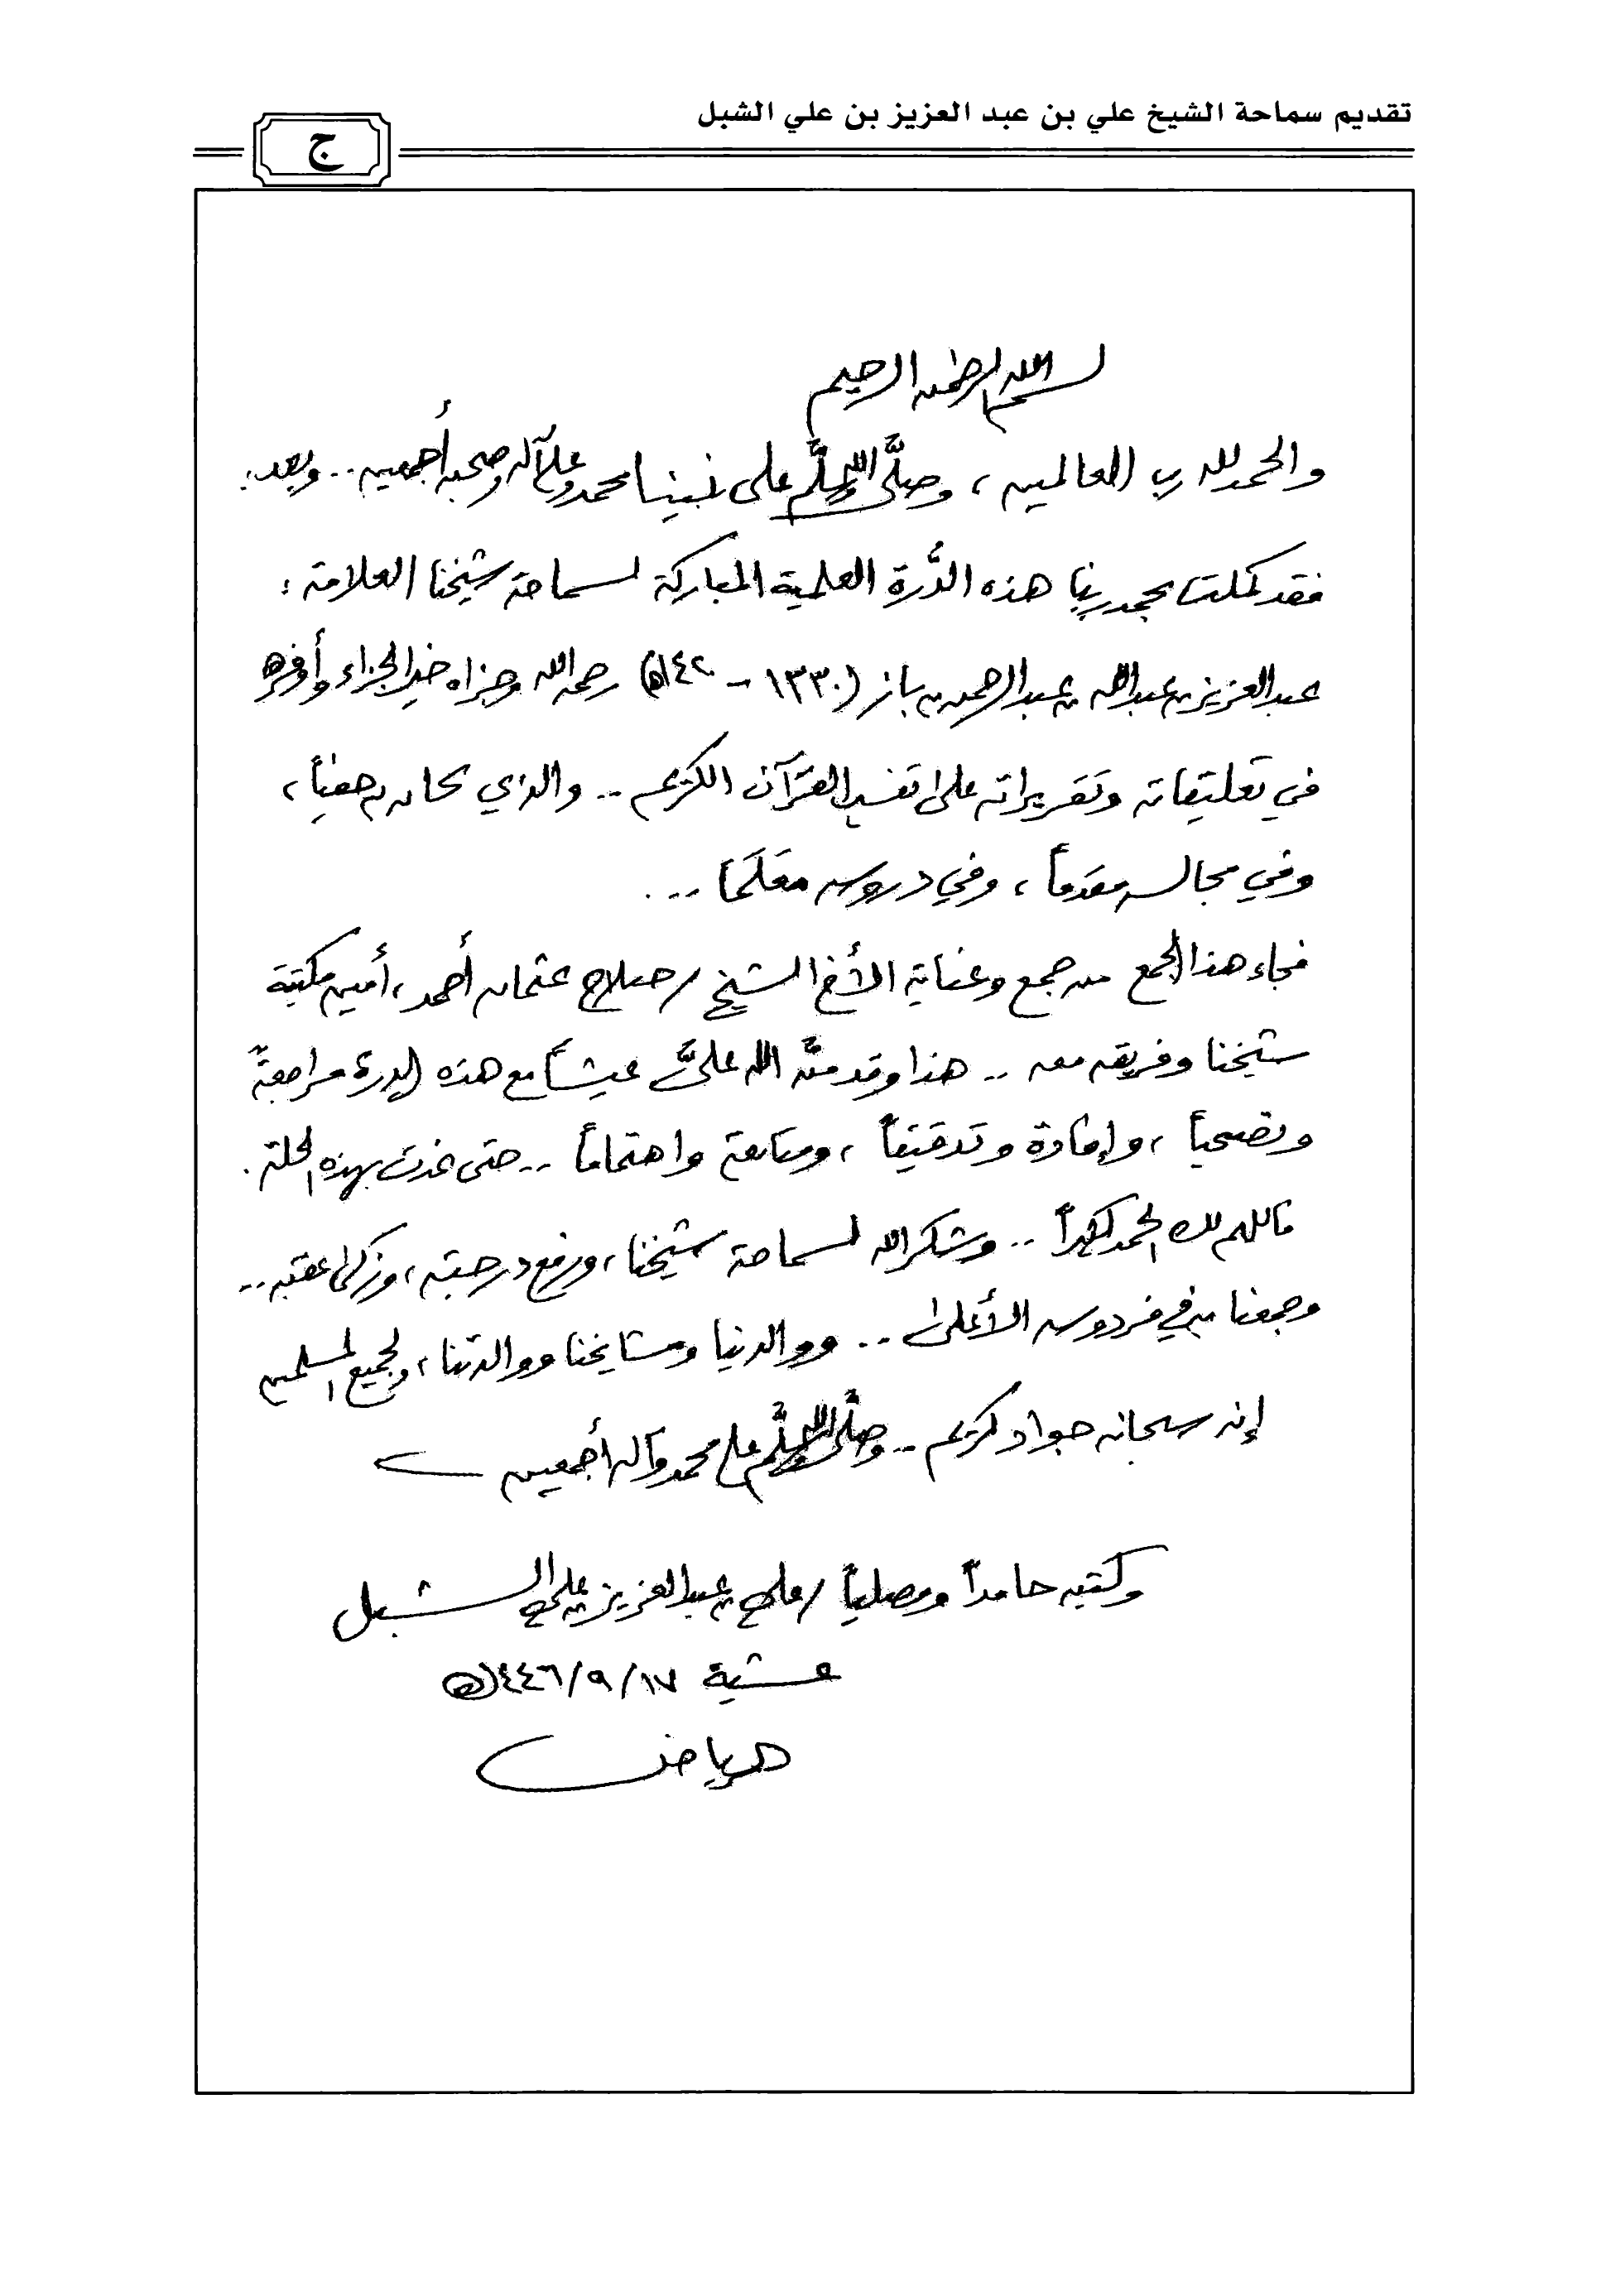 تقديم سماحة الشيخ علي بن عبد العزيز بن علي الشبل
ج
بسم الله الرحمن الرحيم
والحمد لله رب العالمين ، وصلَّى الله وسلَّم على نبينا محمد وعلى آله وصحبه أجمعين .. وبعد :
فقد كملت بحمد ربنا هذه الدُّرة العلمية المباركة لسماحة شيخنا العلامة :
عبدالعزيز بن عبدالله بن عبدالرحمن بن باز (١٣٣٠ - ١٤٢٠هـ) رحمه الله وجزاه خير الجزاء وأوفره
في تعليقاته وتقريراته على تفسير القرآن الكريم .. والذي كان به حفياً ،
وفي مجالسه مقدماً ، وفي دروسه معلَمَاً ...
فجاء هذا الجمع من جمع وعناية الأخ الشيخ / صلاح عثمان أحمد ، أمين مكتبة
شيخنا وفريقه معه .. هذا وقد منَّ الله عليَّ عيشاً مع هذه الدرة مراجعةً
وتصحيحاً ، وإفادة وتدقيقاً ، ومتابعة واهتماماً .. حتى غدت بهذه الحلة .
فاللهم لك الحمد .. وشكر الله لسماحة شيخنا ، ورفع درجته ، وزكى عقبه ..
وجمعنا به في فردوسه الأعلى .. ووالدينا ومشايخنا ووالدتنا ، ولجميع المسلمين
إنه سبحانه جواد كريم .. وصلَّى الله وسلَّم على محمد وآله أجمعين
وكتبه حامداً ومصلياً / علي بن عبدالعزيز بن علي الشبل
عشية ١٧/٩/١٤٤٦هـ
الرياض